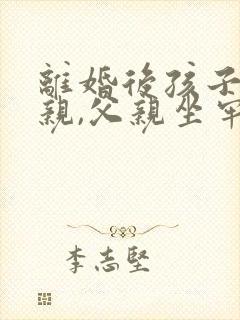 離婚後孩子
親,父親坐牢
李志堅